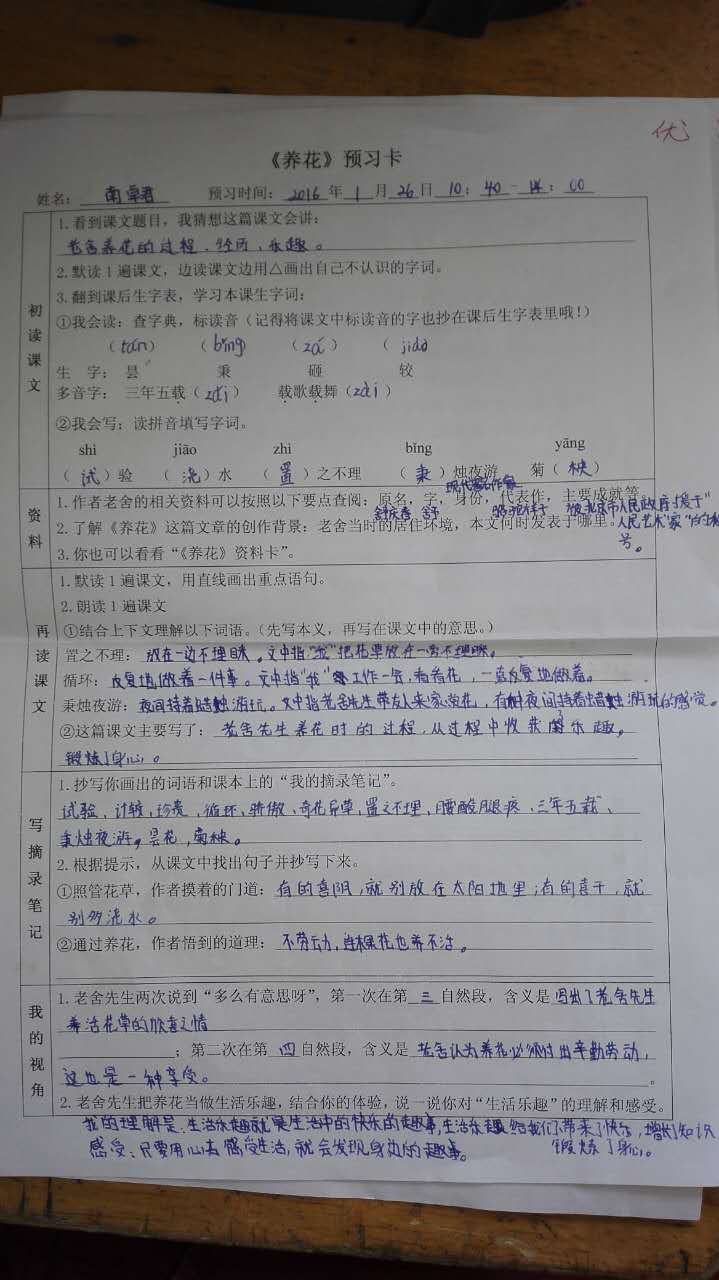 优
《养花》预习卡
姓名： 南卓君 预习时间：2016 年 1 月 26 日 10：40 - 11：00
初读课文
1.看到课文题目，我猜想这篇课文会讲：
老舍养花的过程、经历、乐趣。
2.默读1遍课文，边读课文边用△画出自己不认识的字词。
3.翻到课后生字表，学习本课生字词：
①我会读：查字典，标读音（记得将课文中标读音的字也抄在课后生字表里哦！）
（tán） （bǐng） （zá） （jiào
生 字：昙 秉 砸 较
多音字：三年五载（zǎi） 载歌载舞（zài）
②我会写：读拼音填写字词。
shì jiāo zhì bǐng yāng
（试）验 （浇）水 （置）之不理 （秉）烛夜游 菊（秧）
资料
现代著名作家
1.作者老舍的相关资料可以按照以下要点查阅：原名，字，身份，代表作，主要成就等。
舒庆春 舒予 骆驼祥子 被北京市人民政府授于"
2.了解《养花》这篇文章的创作背景：老舍当时的居住环境，本文何时发表于哪里。
人民艺术家"的称
号。
3.你也可以看看“《养花》资料卡”。
再读课文
1.默读1遍课文，用直线画出重点语句。
2.朗读1遍课文
①结合上下文理解以下词语。（先写本义，再写在课文中的意思。）
置之不理：放在一边不理睬。文中指"我"把花草放在一旁不理睬。
循环：反复地做着一件事。文中指"我"工作一会，看看花，一直反复地做着。
秉烛夜游：夜间持着蜡烛游玩。文中指老舍先生带友人来家赏花，有种夜间持着蜡烛游玩的感觉。
②这篇课文主要写了：老舍先生养花时的过程，从过程中收获了乐趣，
锻炼了身心。
写摘录笔记
1.抄写你画出的词语和课本上的“我的摘录笔记”。
试验、计较、珍贵、循环、骄傲、奇花异草、置之不理、腰酸腿疼、三年五载、
秉烛夜游。昙花，菊秧。
2.根据提示，从课文中找出句子并抄写下来。
①照管花草，作者摸着的门道：有的喜阴，就别放在太阳地里；有的喜干，就
别多浇水。
②通过养花，作者悟到的道理：不劳动，连棵花也养不活。
我的视角
1.老舍先生两次说到“多么有意思呀”，第一次在第 三 自然段，含义是 写出了老舍先生
养活花草的欣喜之情
；第二次在第 四 自然段，含义是 老舍认为养花必须付出辛勤劳动，
这也是一种享受。 。
2.老舍先生把养花当做生活乐趣，结合你的体验，说一说你对“生活乐趣”的理解和感受。
我的理解是：生活乐趣就是生活中的快乐的趣事，生活乐趣给我们带来了快乐，增长了知识
锻炼了身心。
感受：只要用心去感受生活，就会发现身边的趣事。